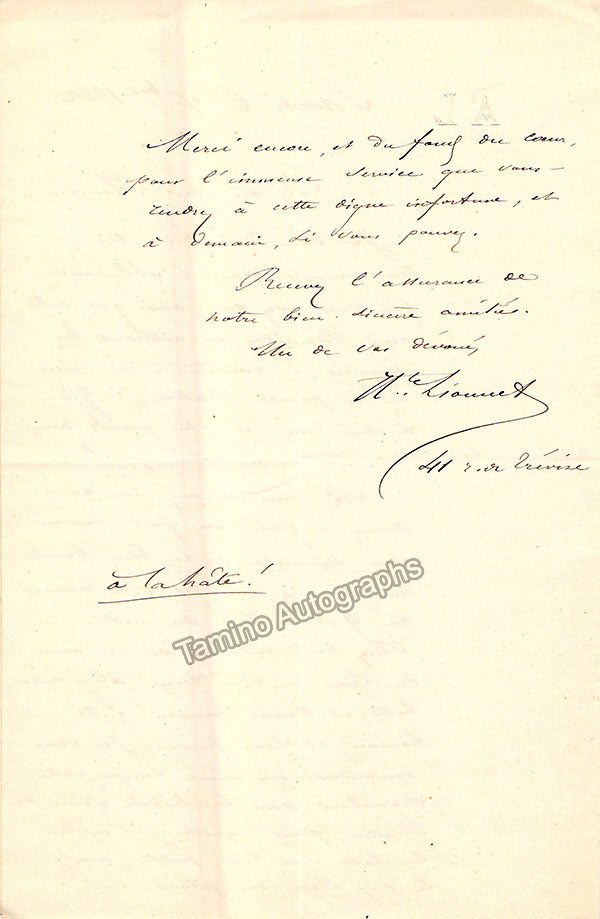 Merci encore, et du fond du cœur,
pour l'immense service que vous
rendez à cette digne infortune, et
à demain, si vous pouvez.
Recevez l'assurance de
notre bien sincère amitié.
Un de vos dévoués,
Hte Lionnet
41 r. de Trévise
à la hâte!
Tamino Autographs